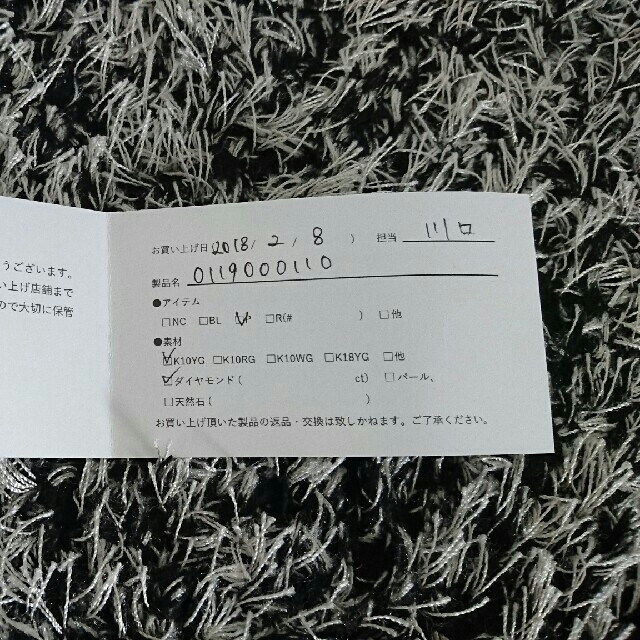 うございます。
い上げ店舗まで
ので大切に保管
お買い上げ日 2018 / 2 / 8 ) 担当 川口
製品名 0119000110
●アイテム
□NC □BL □R(# ) □他
●素材
☑K10YG □K10RG □K10WG □K18YG □他
☑ダイヤモンド( ct) □パール、
□天然石( )
お買い上げ頂いた製品の返品・交換は致しかねます。ご了承ください。